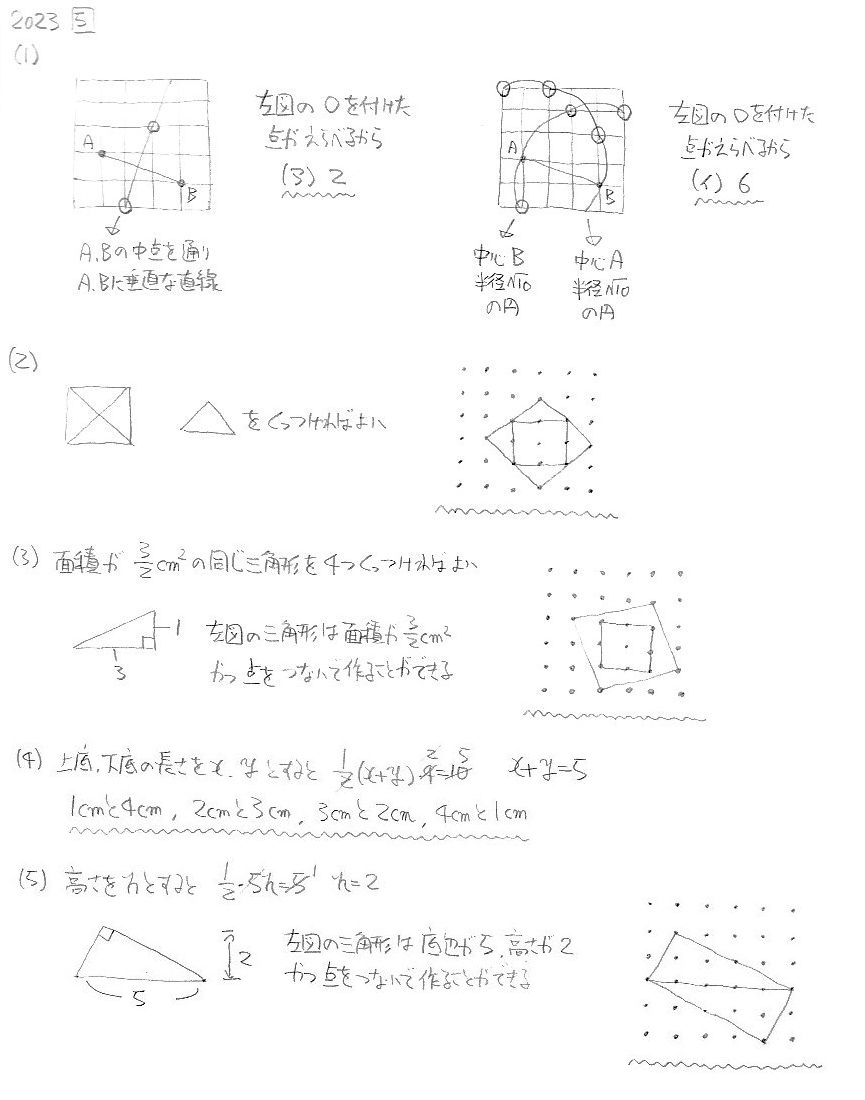 2023 5
(1)
A
B
左図の○を付けた
点がえらべるから
(ア) 2
A,Bの中点を通り
A,Bに垂直な直線
A
B
左図の○を付けた
点がえらべるから
(イ) 6
中心B
半径√10
の円
中心A
半径√10
の円
(2)
をくっつければよい
(3) 面積が 3/2 cm² の同じ三角形を4つくっつければよい
1
3
左図の三角形は面積が 3/2 cm²
かつ点をつないで作ることができる
(4) 上底、下底の長さをx、yとすると 1/2(x+y)・4=10 2 5 x+y=5
1cmと4cm, 2cmと3cm, 3cmと2cm, 4cmと1cm
(5) 高さをhとすると 1/2・5h=5 1 h=2
5
2
左図の三角形は底辺が5、高さが2
かつ点をつないで作ることができる